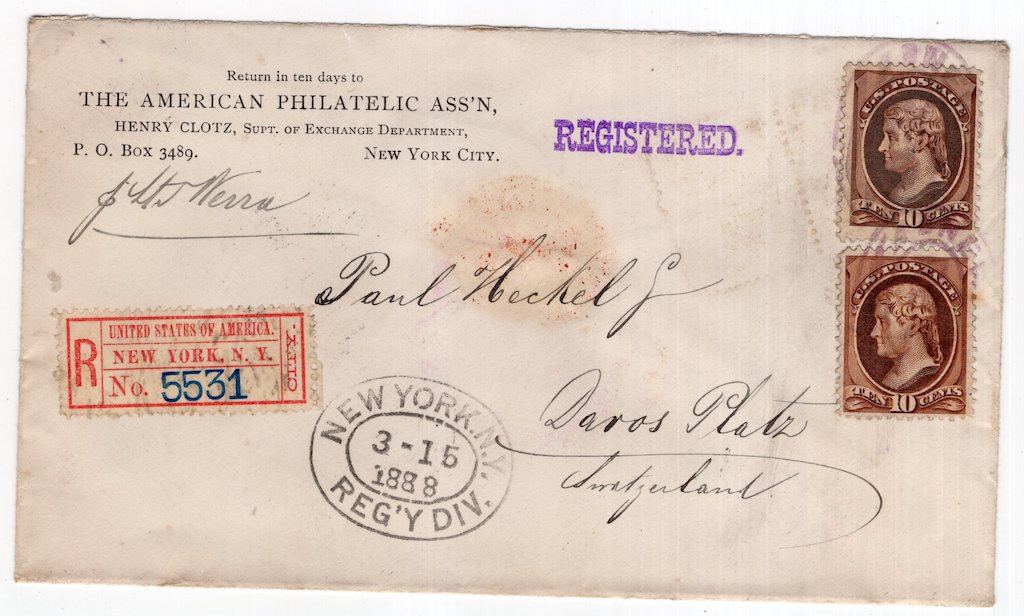 Return in ten days to
THE AMERICAN PHILATELIC ASS'N,
HENRY CLOTZ, SUPT. OF EXCHANGE DEPARTMENT,
P. O. BOX 3489. NEW YORK CITY.
REGISTERED.
U.S. POSTAGE
TEN 10 CENTS
Werra
Paul Heckel
U.S. POSTAGE
TEN 10 CENTS
R
UNITED STATES OF AMERICA.
NEW YORK, N. Y.
No. 5531
CITY.
NEW YORK, N.Y.
3-15
1888
REG'Y DIV.
Davos Platz
Switzerland.